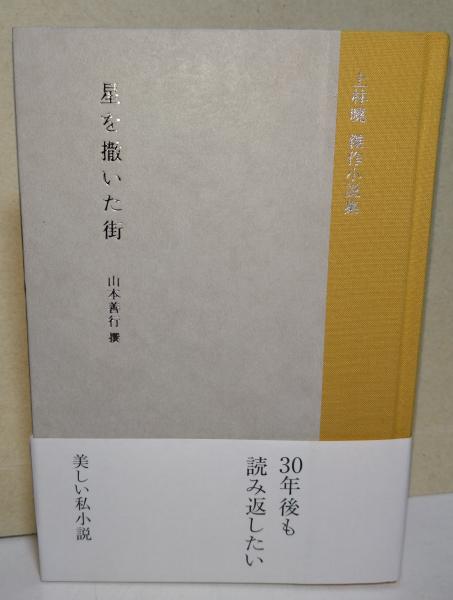 上林曉 傑作小説集
星を撒いた街
山本善行 撰
30年後も
読み返したい
美しい私小説